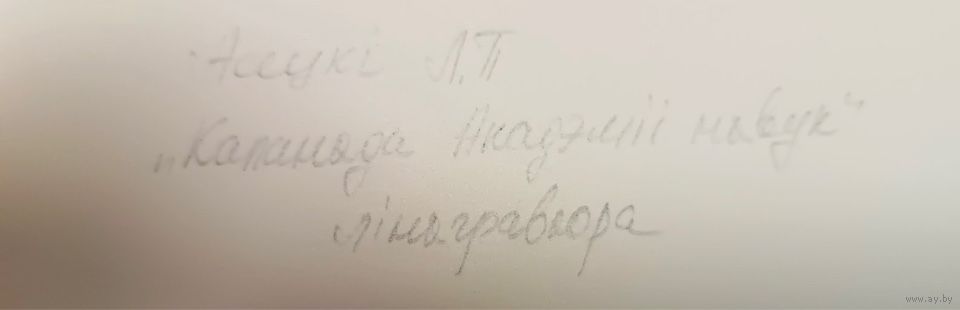 Л.П
„Каланада Акадэміі навук“
лінагравюра
www.ay.by